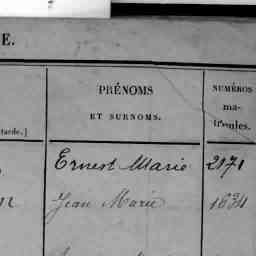 E.
PRÉNOMS
ET SURNOMS.
NUMÉROS
ma-
tricules.
tarde.]
Ernest Marie 2171
Jean Marie 1634